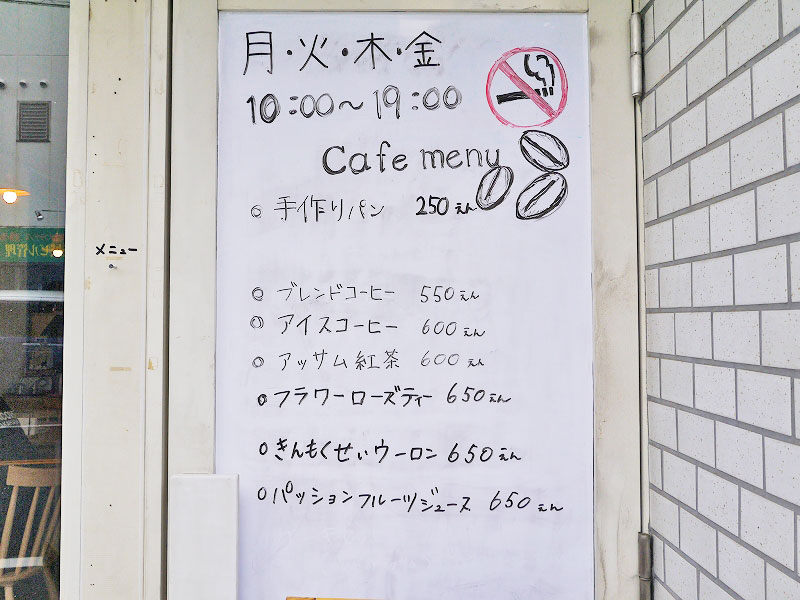 月・火・木・金
10:00〜19:00
Cafe menu
○ 手作りパン 250えん
メニュー
○ ブレンドコーヒー 550えん
○ アイスコーヒー 600えん
○ アッサム紅茶 600えん
○ フラワーローズティー 650えん
○ きんもくせいウーロン 650えん
○ パッションフルーツジュース 650えん
ビル管理